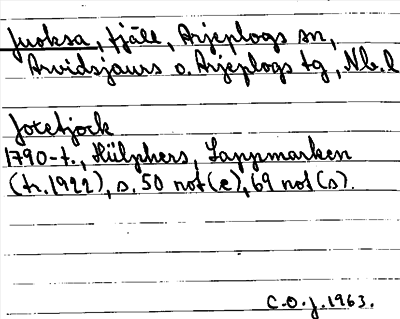 Juoksa, fjäll, Arjeplogs sn,
Arvidsjaurs o. Arjeplogs tg, Nb.l
Jotetjock
1790-t., Hülphers, Lappmarken
(tr. 1922), s. 50 not (æ), 69 not (s).
C.O.J. 1963.